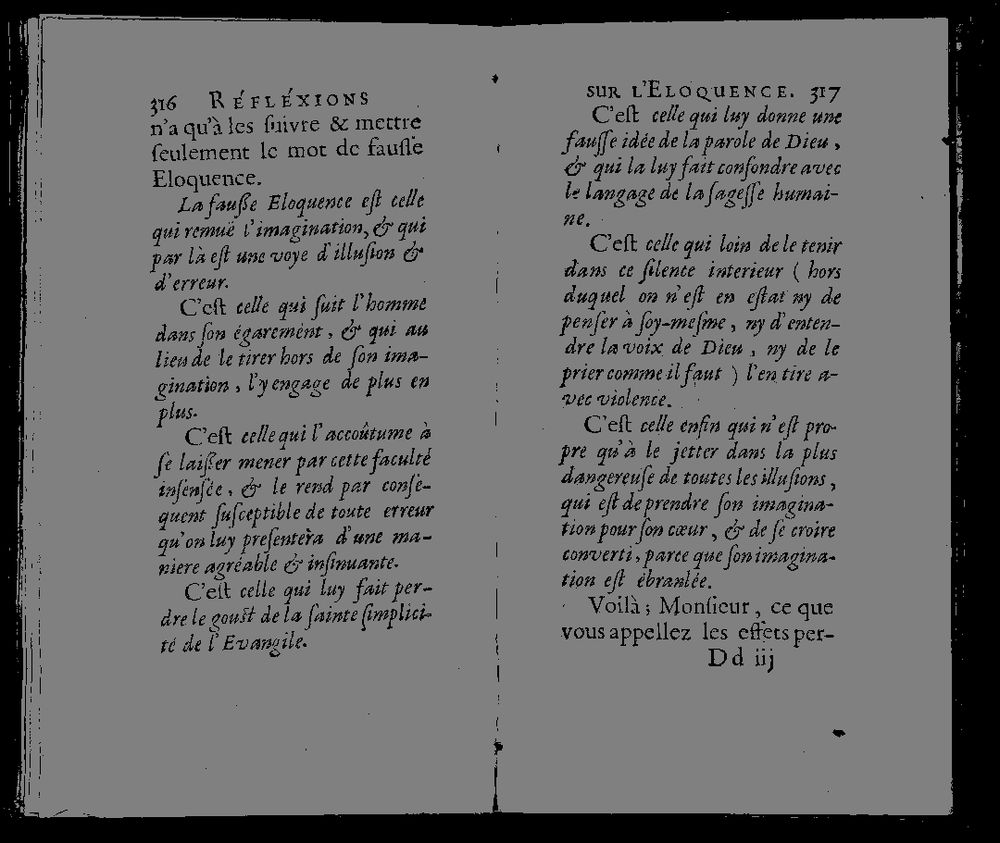 316 RÉFLÉXIONS
n'a qu'à les ſuivre & mettre
ſeulement le mot de fauſſe
Eloquence.
La fauſſe Eloquence eſt celle
qui remuë l'imagination, & qui
par là eſt une voye d'illuſion &
d'erreur.
C'eſt celle qui ſuit l'homme
dans ſon égarement, & qui au
lieu de le tirer hors de ſon ima-
gination, l'y engage de plus en
plus.
C'eſt celle qui l'accoûtume à
ſe laiſſer mener par cette faculté
inſenſée, & le rend par conſe-
quent ſuſceptible de toute erreur
qu'on luy preſentera d'une ma-
niere agréable & inſinuante.
C'eſt celle qui luy fait per-
dre le gouſt de la ſainte ſimplici-
té de l'Evangile.
SUR L'ELOQUENCE. 317
C'eſt celle qui luy donne une
fauſſe idée de la parole de Dieu,
& qui la luy fait confondre avec
le langage de la ſageſſe humai-
ne.
C'eſt celle qui loin de le tenir
dans ce ſilence interieur ( hors
duquel on n'eſt en eſtat ny de
penſer à ſoy-meſme, ny d'enten-
dre la voix de Dieu, ny de le
prier comme il faut ) l'en tire a-
vec violence.
C'eſt celle enfin qui n'eſt pro-
pre qu'à le jetter dans la plus
dangereuſe de toutes les illuſions,
qui eſt de prendre ſon imagina-
tion pour ſon cœur, & de ſe croire
converti, parce que ſon imagina-
tion eſt ébranlée.
Voilà; Monſieur, ce que
vous appellez les effets per-
Dd iij